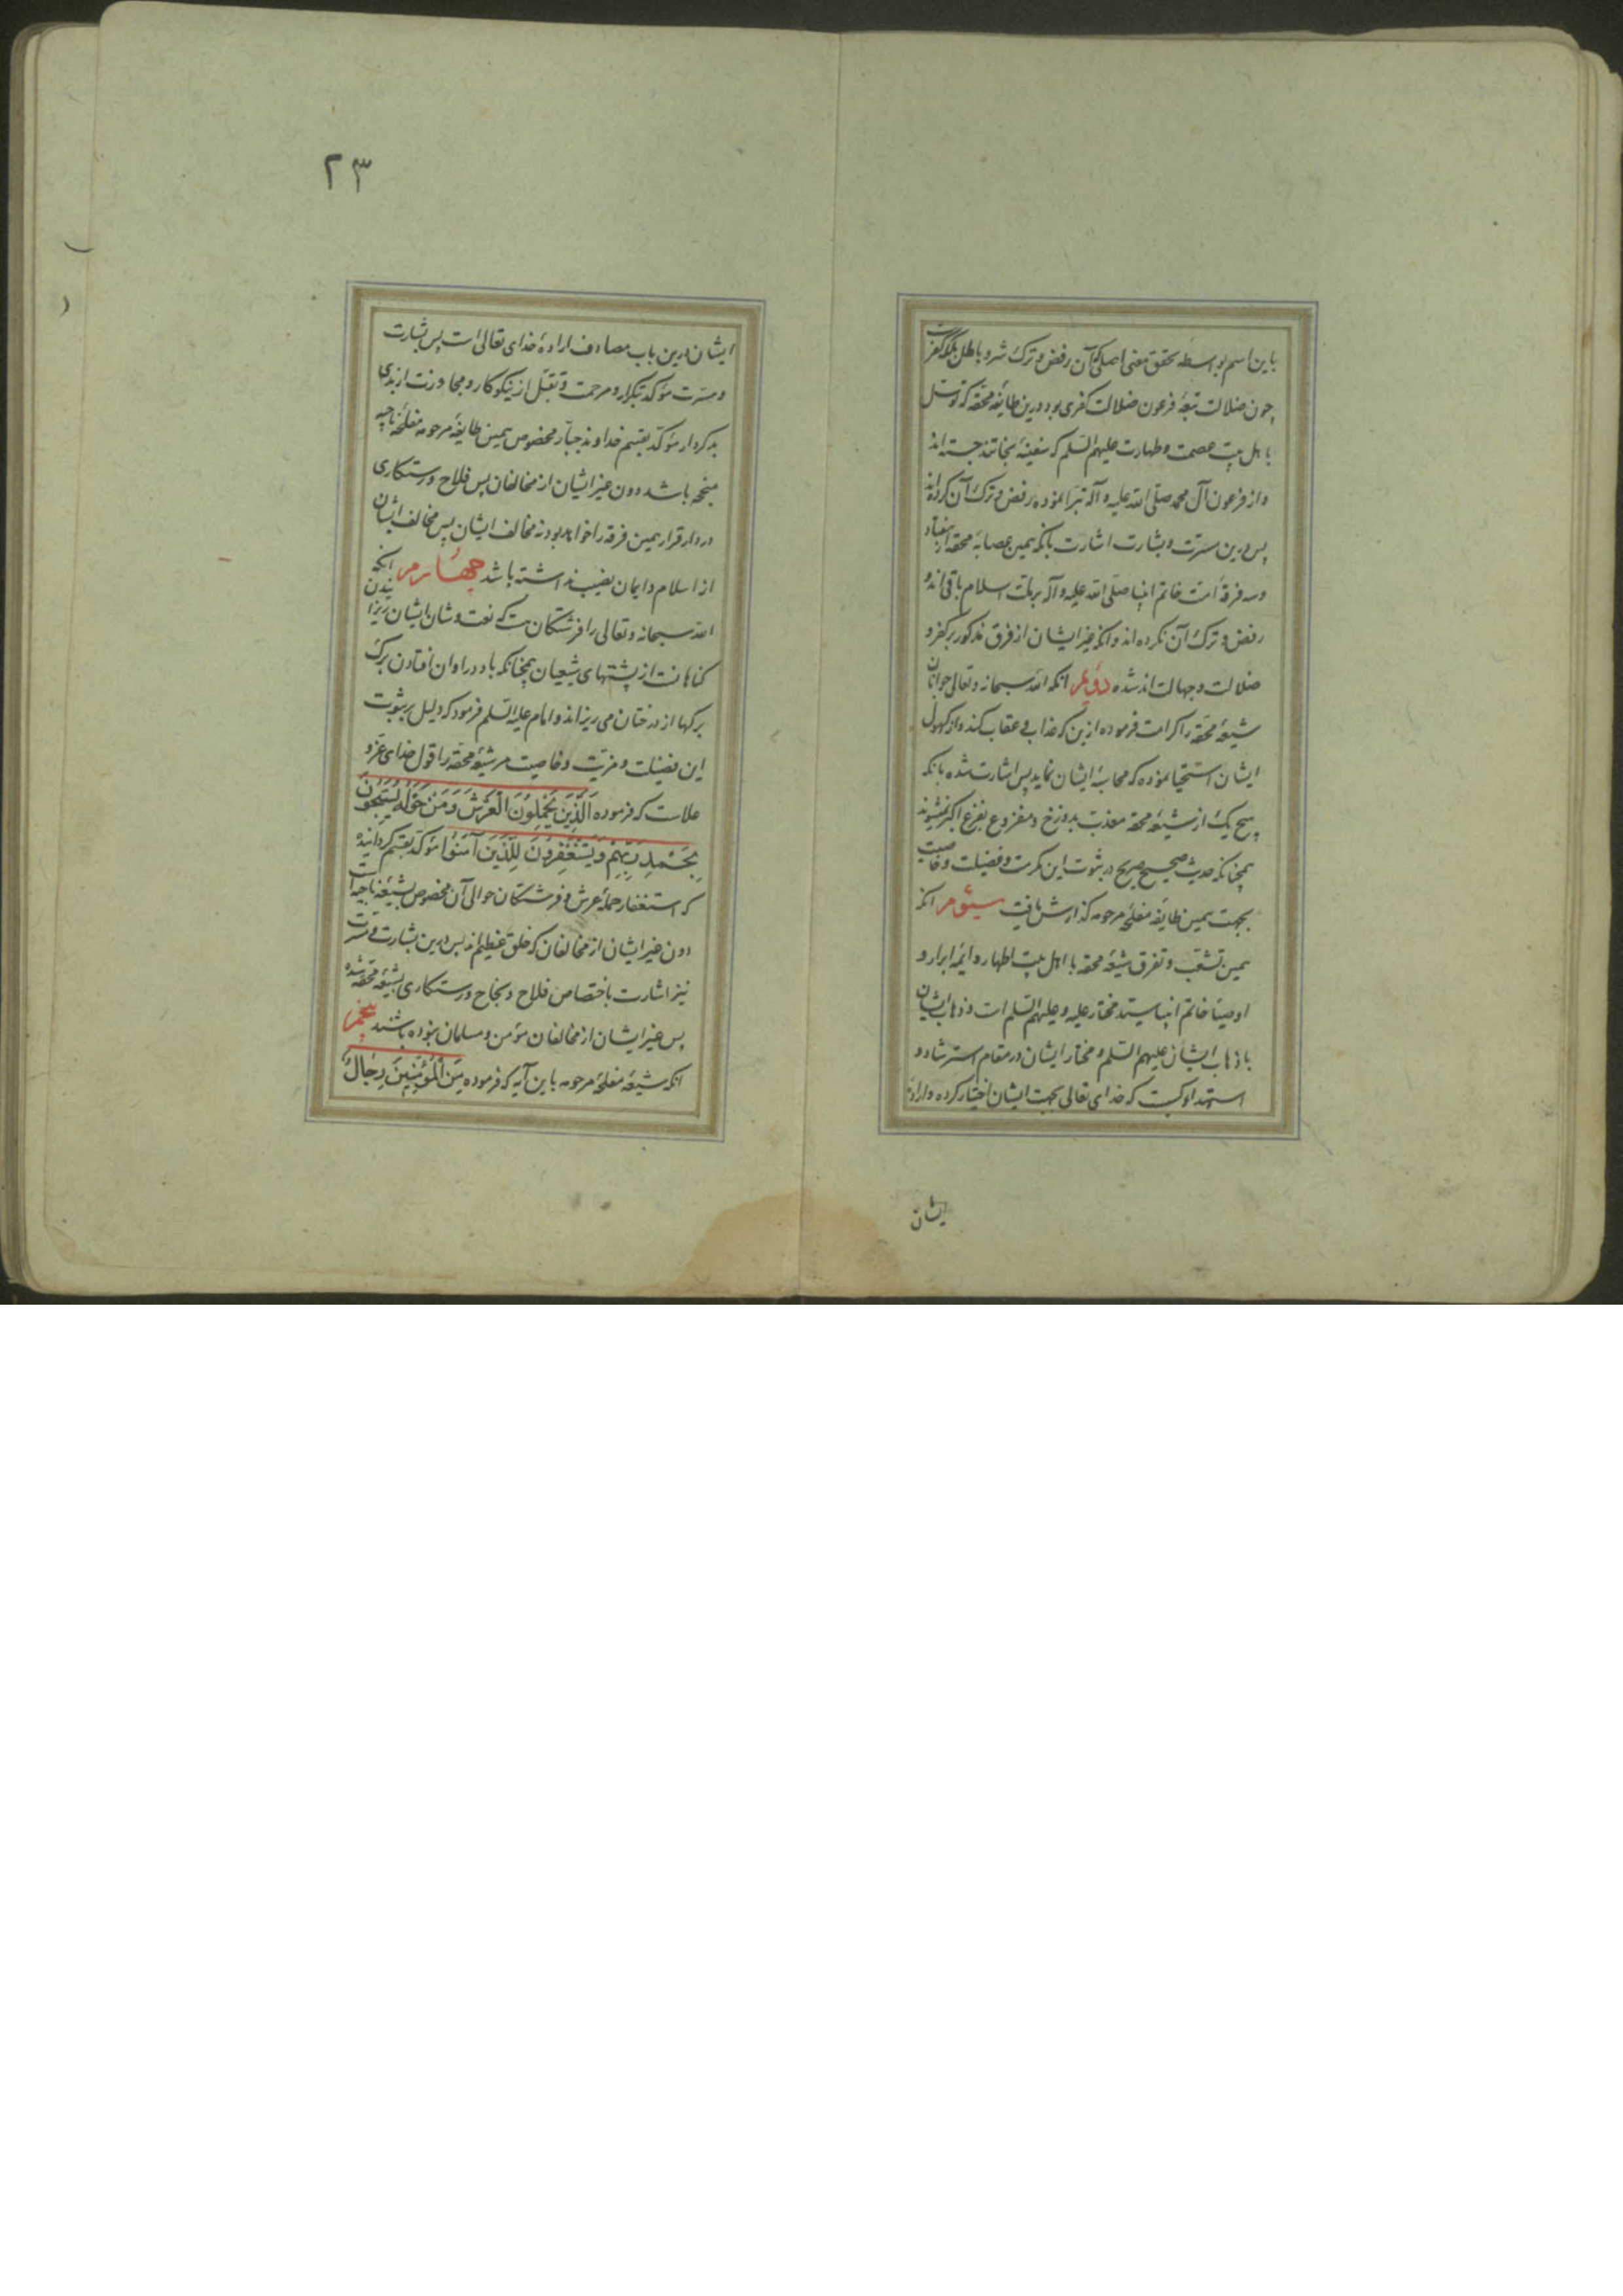 باین اسم بواسطهٔ تحقق معنی اصلی آن رفض و ترک شر و باطل بلکه کفرست
چون ضلالت تبعهٔ فرعون ضلالت کفری بود درین طایفهٔ محقه که توسل
باهل بیت عصمت و طهارت علیهم السلم که سفینهٔ نجاتند جسته‌اند
و از فرعون آل محمد صلی الله علیه و آله تبرا نموده رفض و ترک آن کرده‌اند
پس درین مسرّت و بشارت اشارت بآنکه همین عصابهٔ محقه از هفتاد
و سه فرقهٔ امت خاتم انبیا صلی الله علیه و آله بر ملت اسلام باقی‌اند و
رفض و ترک آن نکرده‌اند و آنکه غیر ایشان از فرق مذکور بر کفر و
ضلالت و جهالت‌اند شده دویم آنکه الله سبحانه و تعالی جوانان
شیعهٔ محقه را کرامت فرموده ازین که عذاب و عقاب کند و از کهول
ایشان استحیا نموده که محاسبهٔ ایشان نماید پس اشارت شده بآنکه
هیچ یک از شیعهٔ محقه معذب بدوزخ و مفزوع بفزع اکبر نمیشوند
همچنانکه حدیث صحیح صریح در ثبوت این مکرمت و فضیلت و خاصیت
بجهت همین طایفهٔ مفلحهٔ مرحومه گذارش یافت سیوم آنکه
همین تشعب و تفرق شیعهٔ محقه با اهل بیت اطهار و ایمهٔ ابرار و
اوصیاء خاتم انبیا سید مختار علیه و علیهم السلم است و ذهاب ایشان
با ذهاب ایشان علیهم السلم و مختار ایشان در مقام استرشاد و
استهدا کسیست که خدای تعالی بجهت ایشان اختیار کرده و ارادهٔ
ایشان
۲۳
ایشان درین باب مصادف ارادهٔ خدای تعالی است پس بشارت
و مسرت مؤکد بتکرار و مرحمت و تقبل از نیکوکار و مجاوزت از بدی
بدکردار مؤکد بقسم خداوند جبّار مخصوص همین طایفهٔ مرحومه مفلحهٔ ناجیه
منجحه باشد دون غیر ایشان از مخالفان پس فلاح و رستکاری
در دار قرار همین فرقه را خواهد بود نه مخالف ایشان پس مخالف ایشان
از اسلام و ایمان نصیب نداشته باشد چهارم آنکه
الله سبحانه و تعالی را فرشتکان هست که نعت و شان ایشان ریزانیدن
کناهانست از پشتهای شیعیان همچنانکه باد در اوان افتادن برک
برکها از درختان می ریزاند و امام علیه السلم فرمود که دلیل بر ثبوت
این فضیلت و مزیت و خاصیت مر شیعهٔ محقه را قول خدای عزّ و
علاست که فرموده اَلَّذِینَ یَحْمِلُونَ الْعَرْشَ وَمَنْ حَوْلَهُ یُسَبِّحُونَ
بِحَمْدِ رَبِّهِمْ وَیَسْتَغْفِرُونَ لِلَّذِینَ آمَنُوا مؤکد بقسم کردانیده
که استغفار حملهٔ عرش و فرشتکان حوالی آن مخصوص بشیعهٔ ناجیه است
دون غیر ایشان از مخالفان که خلق عظیم‌اند پس درین بشارت و مسرت
نیز اشارت باختصاص فلاح و نجاح و رستکاری بشیعهٔ محقه شده
پس غیر ایشان از مخالفان مؤمن و مسلمان نبوده باشند پنجم
آنکه شیعهٔ مفلحهٔ مرحومه باین آیه که فرموده مِنَ الْمُؤْمِنِینَ رِجَالٌ